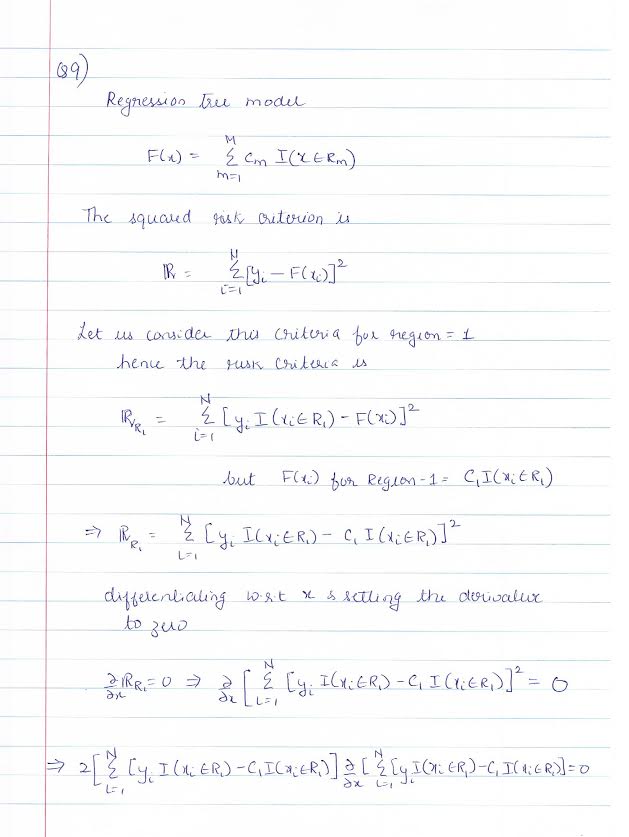 Q9)
Regression tree model
F(x) = Σ_{m=1}^{M} C_m I(x ∈ R_m)
The squared risk criterion is
ℝ = Σ_{i=1}^{N} [y_i − F(x_i)]²
Let us consider this criteria for region = 1
hence the risk criteria is
ℝ_{R₁} = Σ_{i=1}^{N} [y_i I(x_i ∈ R₁) − F(x_i)]²
but F(x_i) for Region-1 = C₁ I(x_i ∈ R₁)
⇒ ℝ_{R₁} = Σ_{i=1}^{N} [y_i I(x_i ∈ R₁) − C₁ I(x_i ∈ R₁)]²
differentiating w.r.t x & setting the derivative
to zero
∂/∂x ℝ_{R₁} = 0 ⇒ ∂/∂x [Σ_{i=1}^{N} [y_i I(x_i ∈ R₁) − C₁ I(x_i ∈ R₁)]² = 0
⇒ 2[Σ_{i=1}^{N} [y_i I(x_i ∈ R₁) − C₁ I(x_i ∈ R₁)] ∂/∂x [Σ_{i=1}^{N} [y_i I(x_i ∈ R₁) − C₁ I(x_i ∈ R₁)] = 0